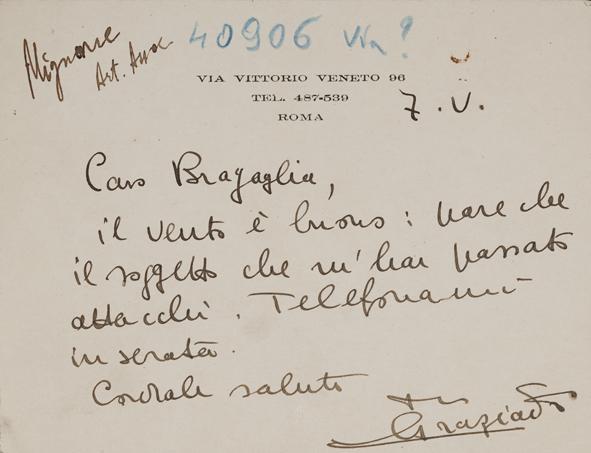 Mignone
Art. Assoc
40906 Via?
VIA VITTORIO VENETO 96
TEL. 487-539
ROMA
7. V.
Caro Bragaglia,
il vento è buono: pare che
il soggetto che m'hai passato
attacchi. Telefonami
in serata.
Cordiale saluto